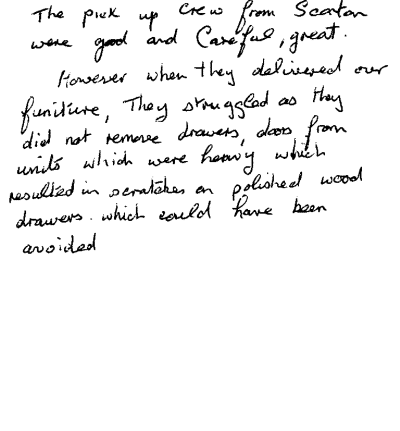 The pick up crew from Seaton
were good and Careful, great.
However when they delivered our
funiture, They struggled as they
did not remove drawers, doors from
units which were heavy which
resulted in scratches on polished wood
drawers. which could have been
avoided